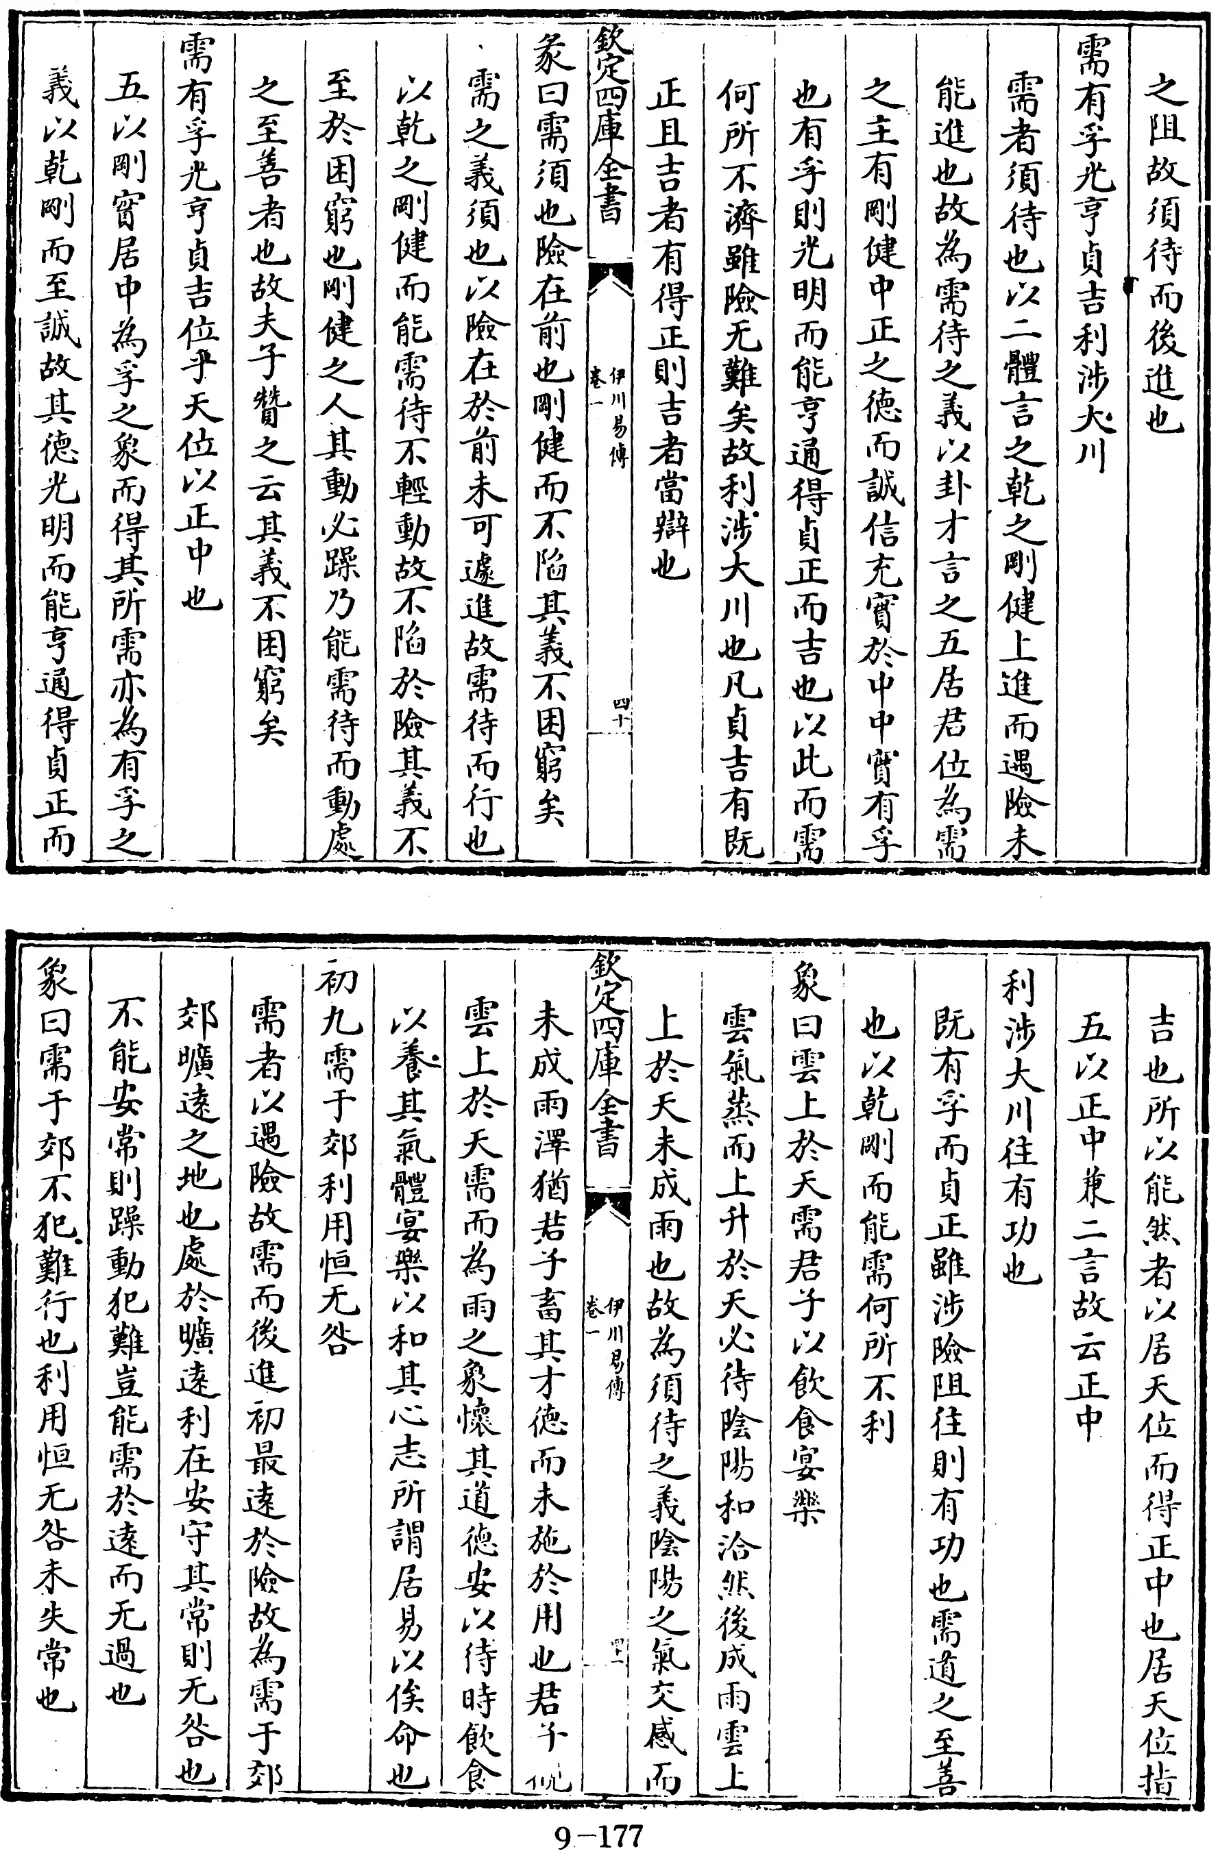 之阻故須待而後進也
需有孚光亨貞吉利涉大川
需者須待也以二體言之乾之剛健上進而遇險未
能進也故為需待之義以卦才言之五居君位為需
之主有剛健中正之德而誠信充實於中中實有孚
也有孚則光明而能亨通得貞正而吉也以此而需
何所不濟雖險无難矣故利涉大川也凡貞吉有既
正且吉者有得正則吉者當辯也
欽定四庫全書
伊川易傳
卷一
四十
彖曰需須也險在前也剛健而不陷其義不困窮矣
需之義須也以險在於前未可遽進故需待而行也
以乾之剛健而能需待不輕動故不陷於險其義不
至於困窮也剛健之人其動必躁乃能需待而動處
之至善者也故夫子贊之云其義不困窮矣
需有孚光亨貞吉位乎天位以正中也
五以剛實居中為孚之象而得其所需亦為有孚之
義以乾剛而至誠故其德光明而能亨通得貞正而
吉也所以能然者以居天位而得正中也居天位指
五以正中兼二言故云正中
利涉大川往有功也
既有孚而貞正雖涉險阻往則有功也需道之至善
也以乾剛而能需何所不利
象曰雲上於天需君子以飲食宴樂
雲氣蒸而上升於天必待陰陽和洽然後成雨雲上
上於天未成雨也故為須待之義陰陽之氣交感而
欽定四庫全書
伊川易傳
卷一
四十一
未成雨澤猶君子畜其才德而未施於用也君子觀
雲上於天需而為雨之象懷其道德安以待時飲食
以養其氣體宴樂以和其心志所謂居易以俟命也
初九需于郊利用恒无咎
需者以遇險故需而後進初最遠於險故為需于郊
郊曠遠之地也處於曠遠利在安守其常則无咎也
不能安常則躁動犯難豈能需於遠而无過也
象曰需于郊不犯難行也利用恒无咎未失常也
9-177